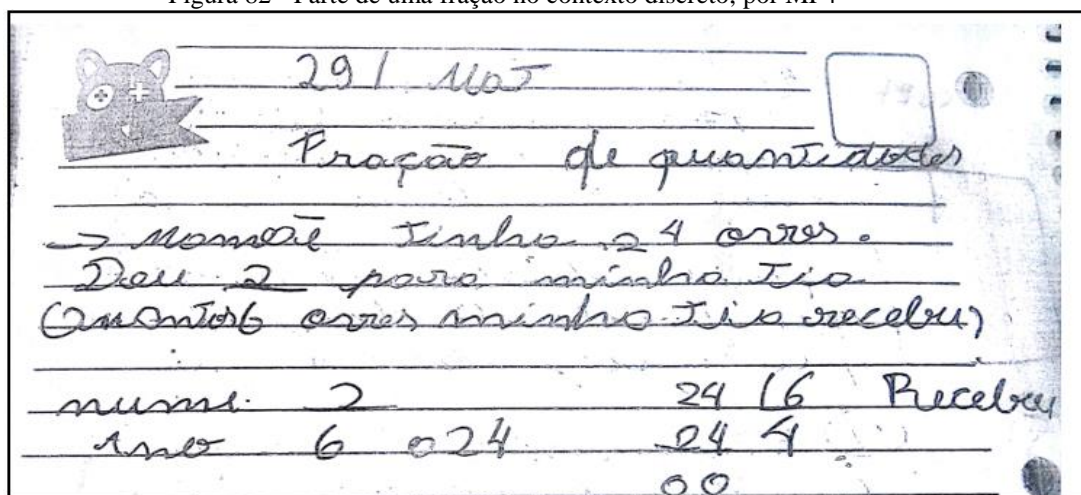 Figura 82 - Parte de uma fração no contexto discreto, por MP4
291 Mat
Fração de quantidades
→ Mamãe tinha 24 arros.
Deu 2 para minha tia
Quantos 6 arros minha tia recebeu?
nume. 2 24 6 Recebeu
6 24 24 4
00